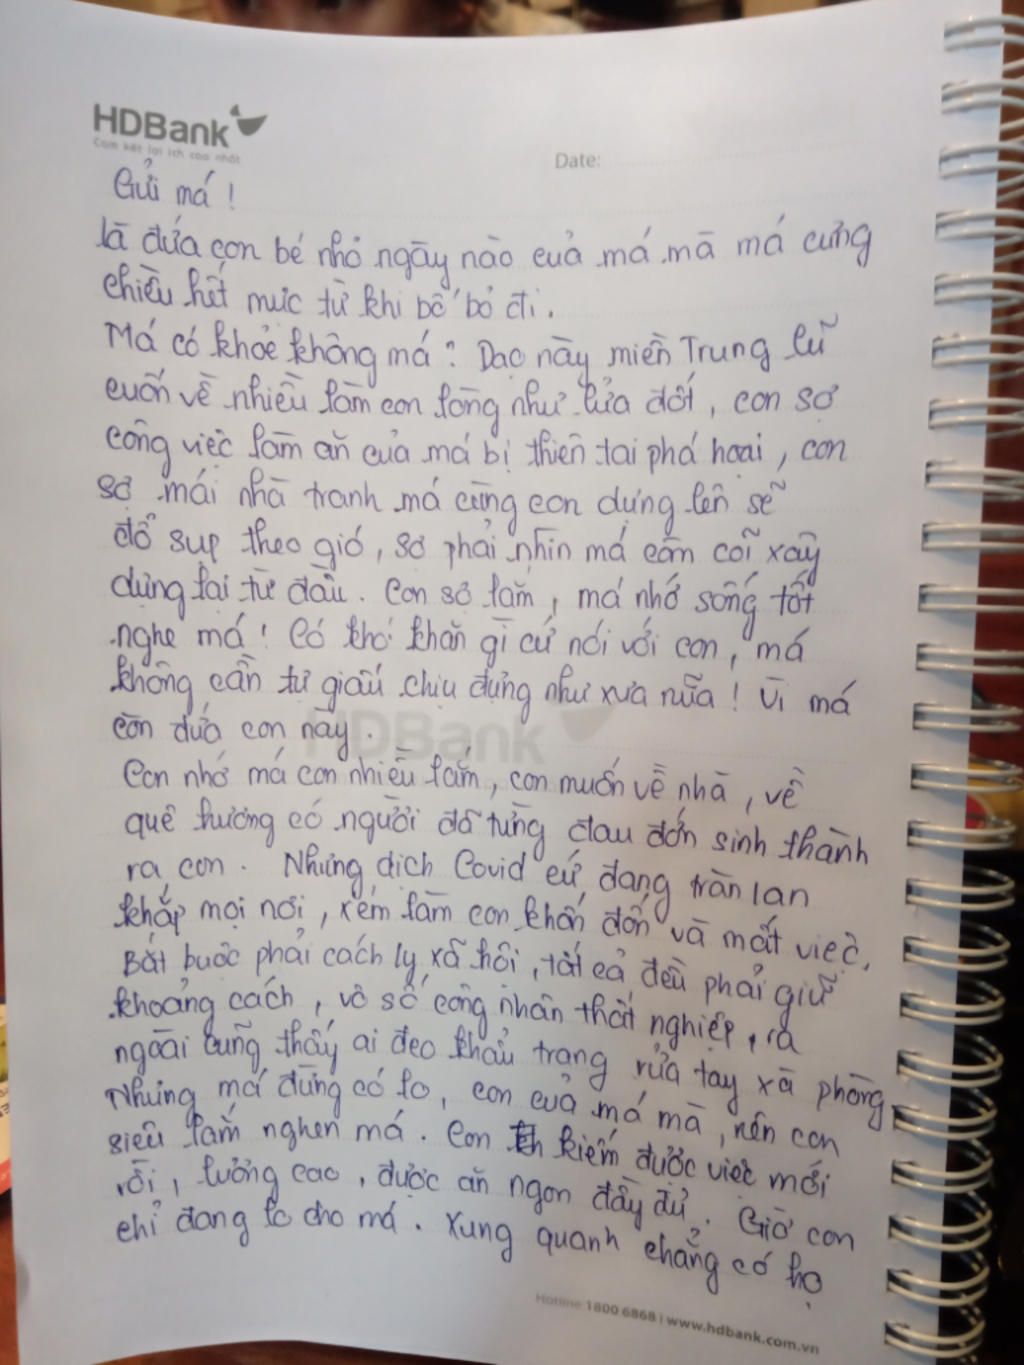 HDBank
Cam kết lợi ích cao nhất
Date:
Gửi má !
là đứa con bé nhỏ ngày nào của má mà má cưng
chiều hết mực từ khi bố bỏ đi.
Má có khỏe không má? Dạo này miền Trung lũ
cuốn về nhiều làm con lòng như lửa đốt, con sợ
công việc làm ăn của má bị thiên tai phá hoại, con
sợ mái nhà tranh má cùng con dựng lên sẽ
đổ sụp theo gió, sợ phải nhìn má cằn cỗi xây
dựng lại từ đầu. Con sợ lắm, má nhớ sống tốt
nghe má! Có khó khăn gì cứ nói với con, má
không cần tự giấu chịu đựng như xưa nữa! Vì má
còn đứa con này.
Con nhớ má con nhiều lắm, con muốn về nhà, về
quê hương có người đã từng đau đớn sinh thành
ra con. Nhưng dịch Covid cứ đang tràn lan
khắp mọi nơi, xém làm con khốn đốn và mất việc,
Bắt buộc phải cách ly xã hội, tất cả đều phải giữ
khoảng cách, vô số công nhân thất nghiệp, ra
ngoài cũng thấy ai đeo khẩu trang rửa tay xà phòng,
Nhưng má đừng có lo, con của má mà, nên con
siêu lắm nghen má. Con kiếm được việc mới
rồi, lương cao, được ăn ngon đầy đủ. Giờ con
chỉ đang lo cho má. Xung quanh chẳng có họ
HDBank
Hotline 1800 6868 | www.hdbank.com.vn